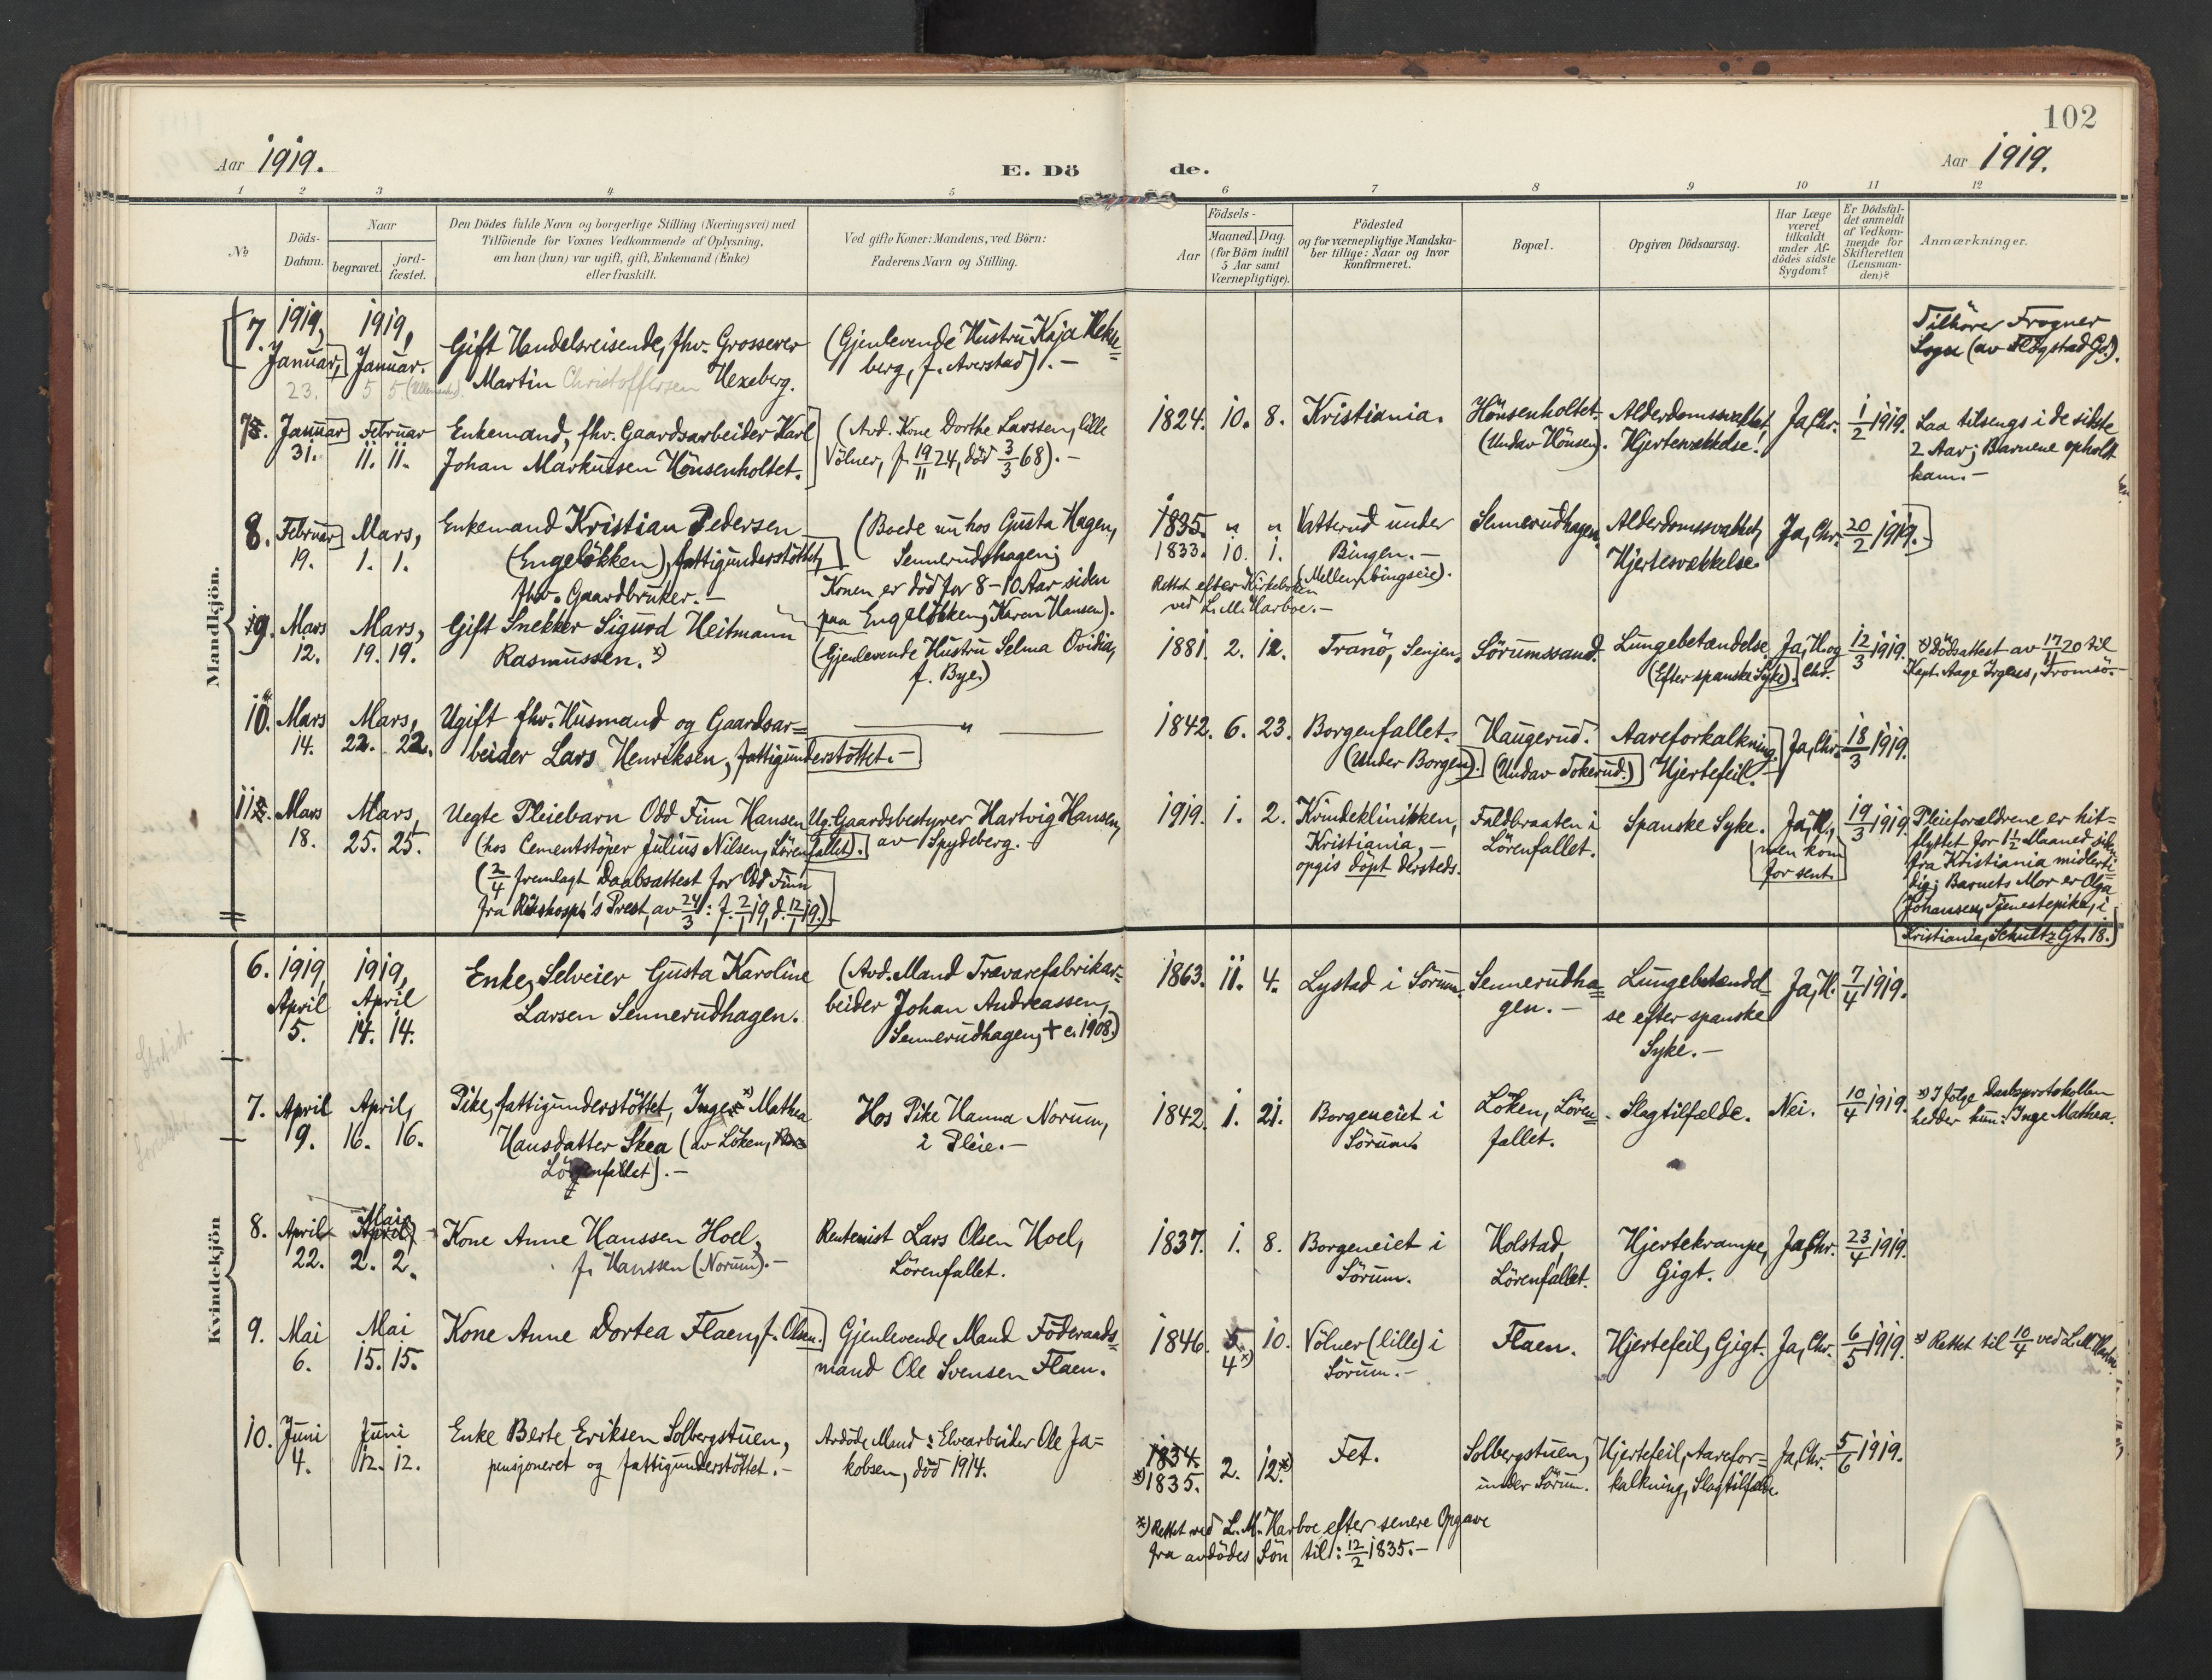 102
Aar 1919.
E. Dö
de.
Aar 1919.
1 2 3 4 5 6 7 8 9 10 11 12
No
Döds-
Datum.
Naar
begravet.
jord-
fæstet.
Den Dödes fulde Navn og borgerlige Stilling (Næringsvei) med
Tilföiende for Voxnes Vedkommende af Oplysning,
om han (hun) var ugift, gift, Enkemand (Enke)
eller fraskilt.
Ved gifte Koner: Mandens, ved Börn:
Faderens Navn og Stilling.
Födsels-
Aar
Maaned. Dag.
(for Börn indtil
5 Aar samt
Værnepligtige).
Födested
og for værnepligtige Mandska-
ber tillige: Naar og hvor
konfirmeret.
Bopæl.
Opgiven Dödsaarsag.
Har Læge
været
tilkaldt
under Af-
dödes sidste
Sygdom?
Er Dödsfal-
det anmeldt
af Vedkom-
mende for
Skifteretten
(Lensman-
den)?
Anmærkninger.
Mandkjön.
7. 1919, Januar, 23.
1919, Januar. 5 5
Gift Handelsreisende, fhv. Grosserer
Martin Christoffersen Hexeberg.
(Gjenlevende Hustru Kaja Heks=
berg, f. Averstad). -
Tilhörer Frogner
Sogn (av Flögstad Gd.).
7. Januar 31.
Februar 11. 11.
Enkemand, fhv. Gaardsarbeider Karl
Johan Markussen Hönsenholtet.
(Avd. Kone Dorthe Larssen, lille
Völner, f. 19/11 24, död 3/3 68). -
1824. 10. 8.
Kristiania.
Hönsenholtet
(Under Hönsen).
Alderdomssvakhet,
Hjertesvækkelse!
Ja, Chr.
1/2 1919.
Laa tilsengs i de sidste
2 Aar; Barnene opholdt
ham. -
8. Februar 19.
Mars, 1. 1.
Enkemand Kristian Pedersen
(Engelökken), fattigunderstöttet,
fhv. Gaardbruker. -
(Boede nu hos Gusta Hagen,
Sennerudshagen;
Konen er död for 8-10 Aar siden
paa Engelökken, Karen Hansen).
1835. " "
1833. 10. 1.
Vatterud under
Bingen. -
(Mellem bingseie).
Rettet efter Kirkeboken
ved L. M. Harboe. -
Sennerudhagen.
Alderdomssvakhet,
Hjertesvækkelse.
Ja, Chr.
20/2 1919. -
9. Mars 12.
Mars, 19. 19.
Gift Snekker Sigurd Heitmann
Rasmussen. x)
(Gjenlevende Hustru Selma Ovidia,
f. Bye.)
1881. 2. 12.
Tranö, Senjen.
Sörumssand.
Lungebetændelse
(Efter spanske Syke).
Ja, H. og
Chr.
12/3 1919.
x) Dödsattest av 17/11 20 til
Kapt. Aage Irgens, Tromsö.
10. Mars 14.
Mars, 22. 22.
Ugift fhv. Husmand og Gaardsar=
beider Lars Henriksen, fattigunderstöttet. -
"
1842. 6. 23.
Borgenfallet.
(Under Borgen).
Haugerud.
(Under Tokerud.)
Aareforkalkning.
Hjertefeil. -
Ja, Chr.
18/3 1919.
11. Mars 18.
Mars, 25. 25.
Uegte Pleiebarn Odd Finn Hansen
(hos Cementstöper Julius Nilsen, Lörenfallet).
(2/4 fremlagt Daabsattest for Odd Finn
fra Rikshosp's Prest, av 24/3: f. 2/1 19, d. 12/1 19.)
Ug. Gaardsbestyrer Hartvig Hansen,
av Spydeberg.
1919. 1. 2.
Kvindeklinikken,
Kristiania, -
opgis döpt dersteds.
Faldbraaten i
Lörenfallet.
Spanske Syke.
Ja, H.,
men kom
for sent.
19/3 1919.
Pleieforældrene er hit=
flyttet for 1½ Maaned siden
fra Kristiania midlerti=
dig; Barnets Mor er Olga
Johansen, Tjenestepike, i
Kristiania, Schultz Gt. 18.
Kvindekjön
6. 1919, April 5.
1919, April 14. 14.
Enke, Selveier Gusta Karoline
Larsen Sennerudhagen.
(Avd. Mand Travarefabrikar=
beider Johan Andreassen,
Sennerudhagen, + c. 1908.)
1863. 11. 4.
Lystad i Sörum.
Sennerudha=
gen. -
Lungebetændel=
se efter spanske
Syke. -
Ja, H.
7/4 1919.
7. April 9.
April, 16. 16.
Pike, fattigunderstöttet, Inger x) Mathea
Hansdatter Skea (av Löken,
Lörenfallet). -
Hos Pike Hanna Norum,
2 Pleie. -
1842. 1. 21.
Borgeneiet i
Sörum.
Löken, Lören=
fallet.
Slagtilfælde.
Nei.
10/4 1919.
x) I fölge Daabsprotokollen
hedder hun: Inge Mathea.
8. April 22.
April Mai 2. 2.
Kone Anne Hanssen Hoel,
f. Hanssen (Norum). -
Rentenist Lars Olsen Hoel,
Lörenfallet.
1837. 1. 8.
Borgeneiet i
Sörum.
Holstad,
Lörenfallet.
Hjertekrampe,
Gigt.
Ja, Chr.
23/4 1919.
9. Mai 6.
Mai 15. 15.
Kone Anne Dortea Flaen, f. Olsen.
Gjenlevende Mand Föderaads=
mand Ole Svensen Flaen.
1846. 5. 10.
4 x)
Völner (lille) i
Sörum. -
Flaen.
Hjertefeil, Gigt.
Ja, Chr.
6/5 1919.
x) Rettet til 10/4 ved L. M. Harboe
10. Juni 4.
Juni 12. 12.
Enke Berte Eriksen Solbergstuen,
pensjoneret og fattigunderstöttet. -
Avdöde Mand: Elvearbeider Ole Ja=
kobsen, död 1914.
1834.
x) 1835. 2. 12. x)
Fet.
Solbergstuen,
under Sörum.
Hjertefeil, Aarefor=
kalkning, Slagtilfælde
Ja, Chr.
5/6 1919.
x) Rettet ved L. M. Harboe efter senere Opgave
fra avdödes Sön til: 12/2 1835. -